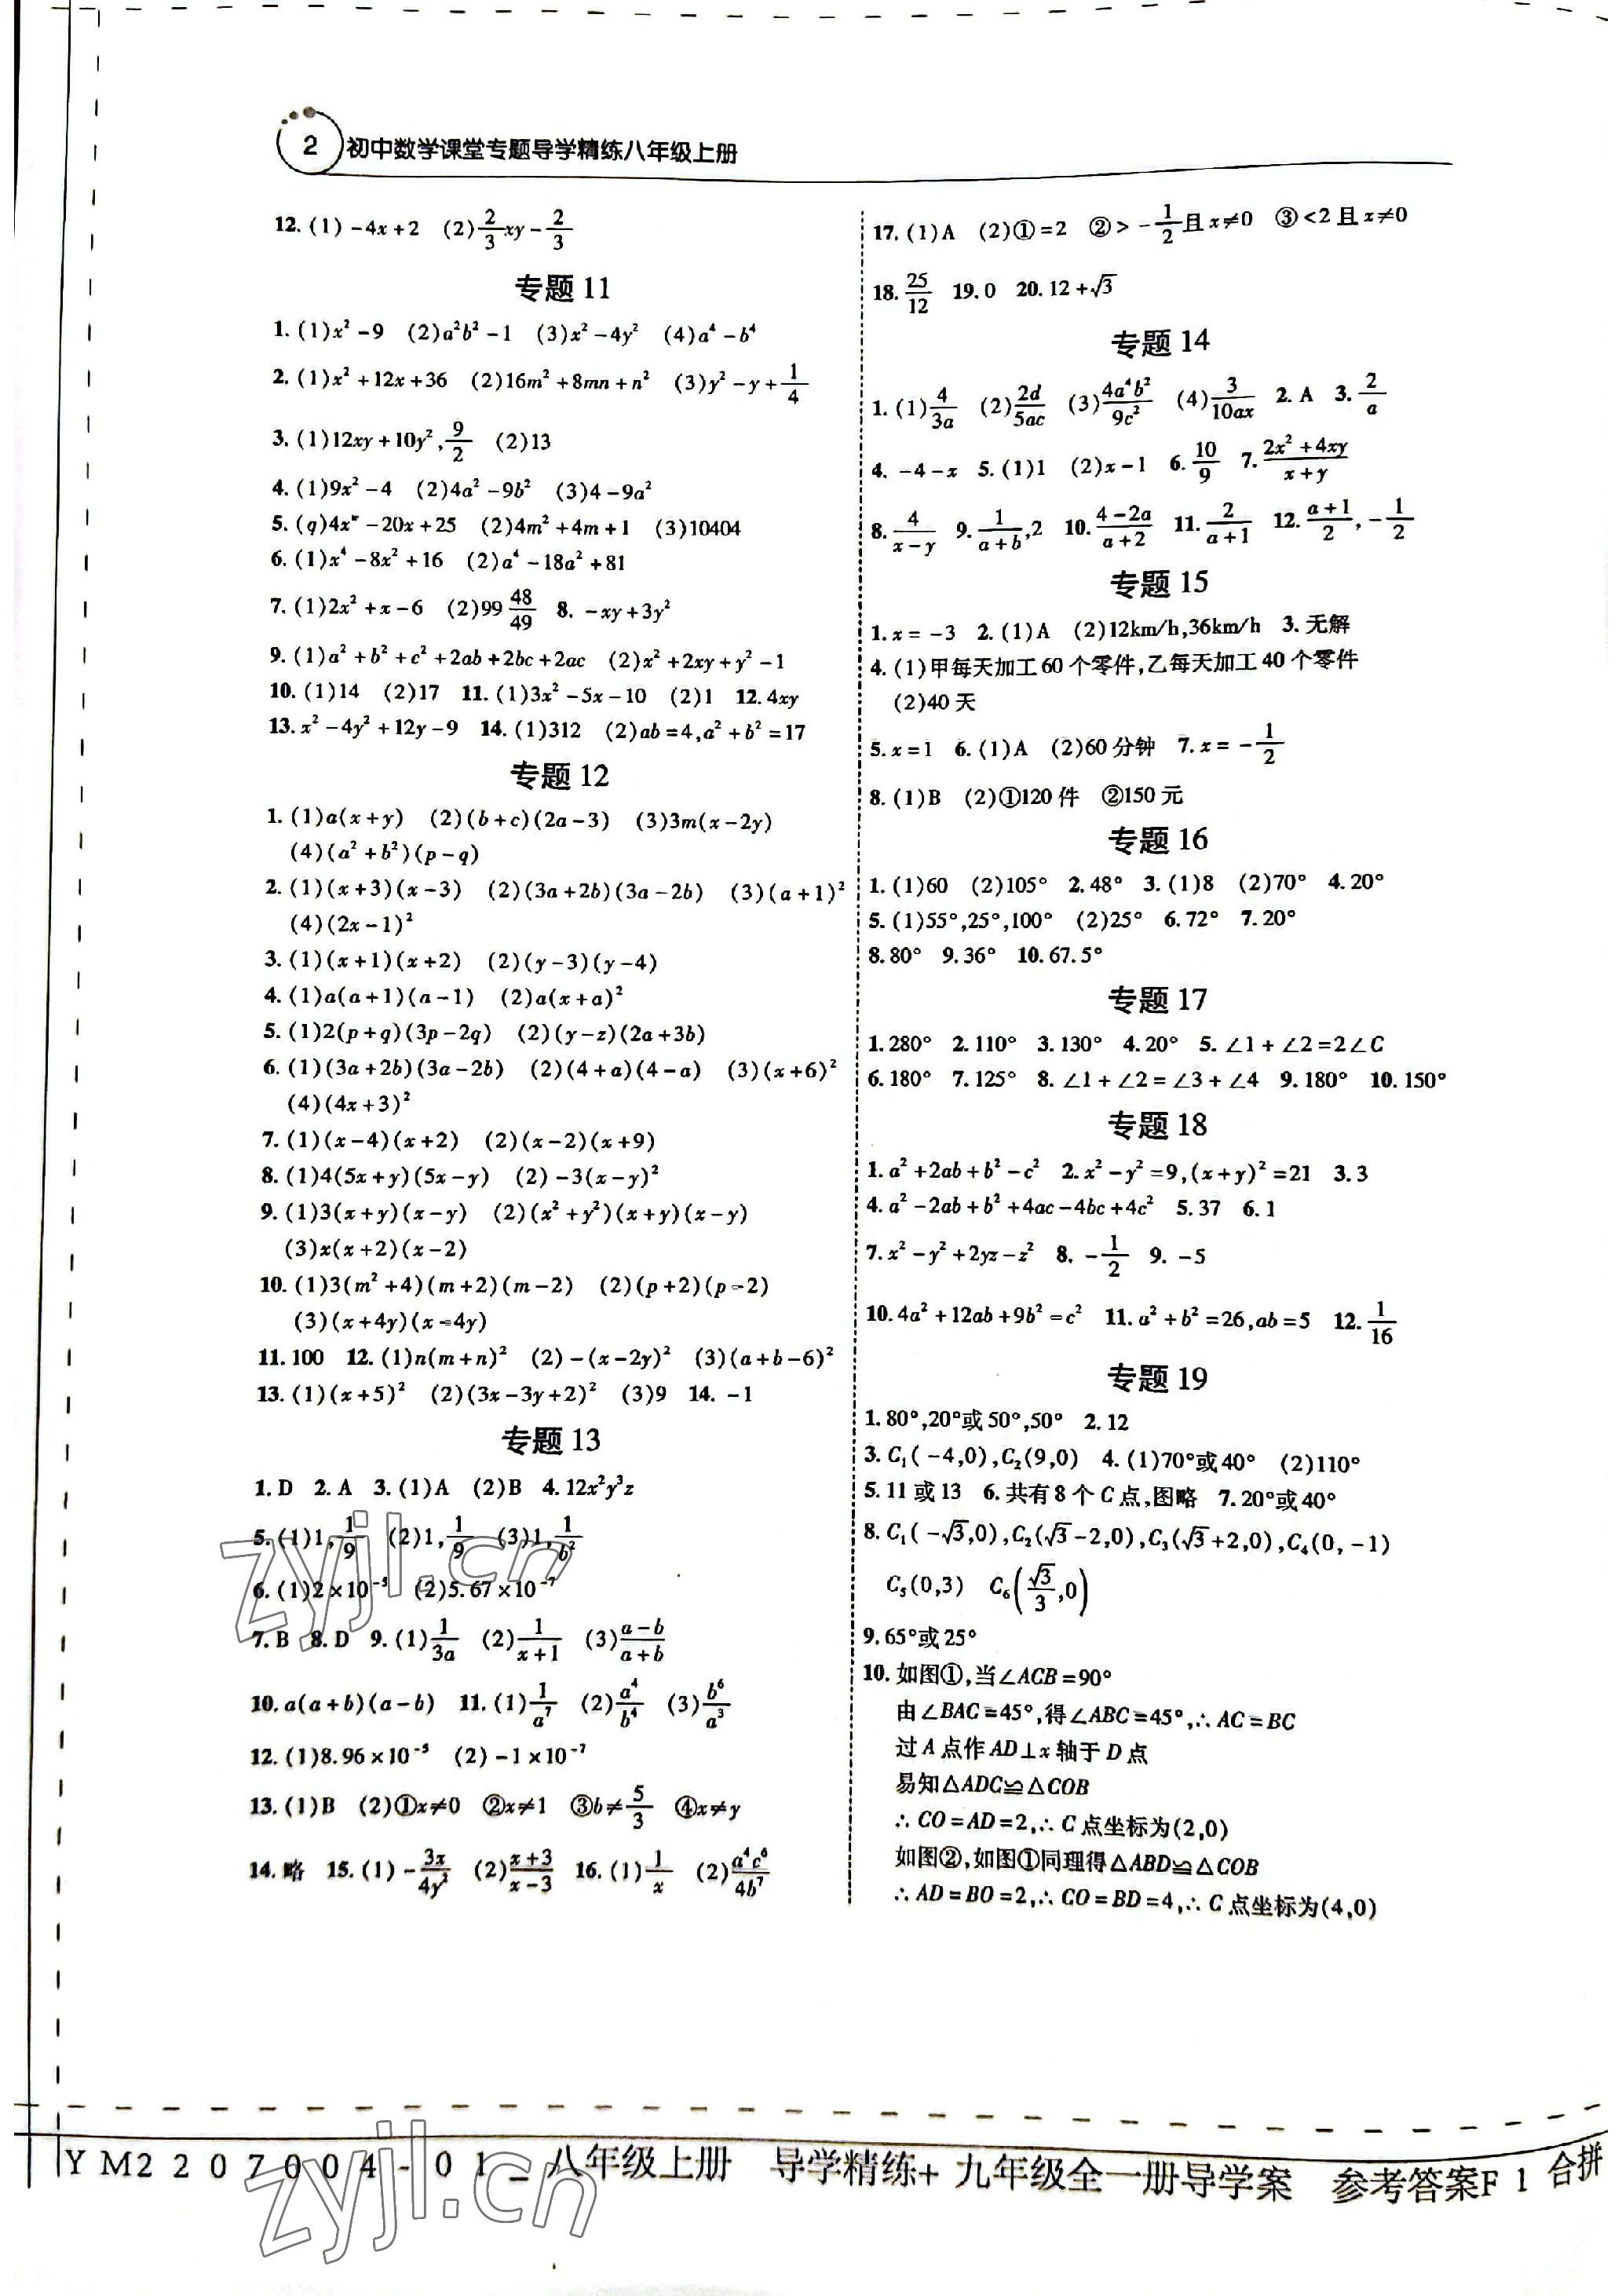 2 初中数学课堂专题导学精练八年级上册
12. (1) -4x+2 (2) 2/3 xy - 2/3
专题 11
1. (1)x² -9 (2)a²b² -1 (3)x² -4y² (4)a⁴ -b⁴
2. (1)x² +12x+36 (2)16m² +8mn+n² (3)y² -y+ 1/4
3. (1)12xy+10y², 9/2 (2)13
4. (1)9x² -4 (2)4a² -9b² (3)4-9a²
5. (q)4x" -20x+25 (2)4m² +4m+1 (3)10404
6. (1)x⁴ -8x² +16 (2)a⁴ -18a² +81
7. (1)2x² +x-6 (2)99 48/49 8. -xy+3y²
9. (1)a² +b² +c² +2ab+2bc+2ac (2)x² +2xy+y² -1
10. (1)14 (2)17 11. (1)3x² -5x-10 (2)1 12. 4xy
13. x² -4y² +12y-9 14. (1)312 (2)ab=4,a² +b² =17
专题 12
1. (1)a(x+y) (2)(b+c)(2a-3) (3)3m(x-2y)
(4)(a² +b²)(p-q)
2. (1)(x+3)(x-3) (2)(3a+2b)(3a-2b) (3)(a+1)²
(4)(2x-1)²
3. (1)(x+1)(x+2) (2)(y-3)(y-4)
4. (1)a(a+1)(a-1) (2)a(x+a)²
5. (1)2(p+q)(3p-2q) (2)(y-z)(2a+3b)
6. (1)(3a+2b)(3a-2b) (2)(4+a)(4-a) (3)(x+6)²
(4)(4x+3)²
7. (1)(x-4)(x+2) (2)(x-2)(x+9)
8. (1)4(5x+y)(5x-y) (2) -3(x-y)²
9. (1)3(x+y)(x-y) (2)(x² +y²)(x+y)(x-y)
(3)x(x+2)(x-2)
10. (1)3(m² +4)(m+2)(m-2) (2)(p+2)(p-2)
(3)(x+4y)(x-4y)
11. 100 12. (1)n(m+n)² (2)-(x-2y)² (3)(a+b-6)²
13. (1)(x+5)² (2)(3x-3y+2)² (3)9 14. -1
专题 13
1. D 2. A 3. (1)A (2)B 4. 12x²y³z
5. (1)1, 1/9 (2)1, 1/9 (3)1, 1/b²
6. (1)2×10⁻⁵ (2)5.67×10⁻⁷
7. B 8. D 9. (1) 1/3a (2) 1/(x+1) (3) (a-b)/(a+b)
10. a(a+b)(a-b) 11. (1) 1/a⁷ (2) a⁴/b⁴ (3) b⁶/a³
12. (1)8.96×10⁻⁵ (2)-1×10⁻⁷
13. (1)B (2)①x≠0 ②x≠1 ③b≠ 5/3 ④x≠y
14. 略 15. (1) - 3x/4y² (2) (x+3)/(x-3) 16. (1) 1/x (2) a⁴c⁶/4b⁷
17. (1)A (2)①=2 ②> - 1/2 且 x≠0 ③<2 且 x≠0
18. 25/12 19. 0 20. 12+√3
专题 14
1. (1) 4/3a (2) 2d/5ac (3) 4a⁴b²/9c² (4) 3/10ax 2. A 3. 2/a
4. -4-x 5. (1)1 (2)x-1 6. 10/9 7. (2x² +4xy)/(x+y)
8. 4/(x-y) 9. 1/(a+b), 2 10. (4-2a)/(a+2) 11. 2/(a+1) 12. (a+1)/2, - 1/2
专题 15
1. x= -3 2. (1)A (2)12km/h,36km/h 3. 无解
4. (1)甲每天加工 60 个零件,乙每天加工 40 个零件
(2)40 天
5. x=1 6. (1)A (2)60 分钟 7. x= - 1/2
8. (1)B (2)①120 件 ②150 元
专题 16
1. (1)60 (2)105° 2. 48° 3. (1)8 (2)70° 4. 20°
5. (1)55°,25°,100° (2)25° 6. 72° 7. 20°
8. 80° 9. 36° 10. 67.5°
专题 17
1. 280° 2. 110° 3. 130° 4. 20° 5. ∠1+∠2=2∠C
6. 180° 7. 125° 8. ∠1+∠2=∠3+∠4 9. 180° 10. 150°
专题 18
1. a² +2ab+b² -c² 2. x² -y² =9,(x+y)² =21 3. 3
4. a² -2ab+b² +4ac-4bc+4c² 5. 37 6. 1
7. x² -y² +2yz-z² 8. - 1/2 9. -5
10. 4a² +12ab+9b² =c² 11. a² +b² =26,ab=5 12. 1/16
专题 19
1. 80°,20°或 50°,50° 2. 12
3. C₁(-4,0),C₂(9,0) 4. (1)70°或 40° (2)110°
5. 11 或 13 6. 共有 8 个 C 点,图略 7. 20°或 40°
8. C₁(-√3,0),C₂(√3-2,0),C₃(√3+2,0),C₄(0,-1)
C₅(0,3) C₆(√3/3,0)
9. 65°或 25°
10. 如图①,当∠ACB=90°
由∠BAC=45°,得∠ABC=45°,∴AC=BC
过 A 点作 AD⊥x 轴于 D 点
易知△ADC≌△COB
∴CO=AD=2,∴C 点坐标为(2,0)
如图②,如图①同理得△ABD≌△COB
∴AD=BO=2,∴CO=BD=4,∴C 点坐标为(4,0)
zyjl.cn
YM2207004-01_八年级上册 导学精练+九年级全一册导学案 参考答案F1合拼
zyjl.cn